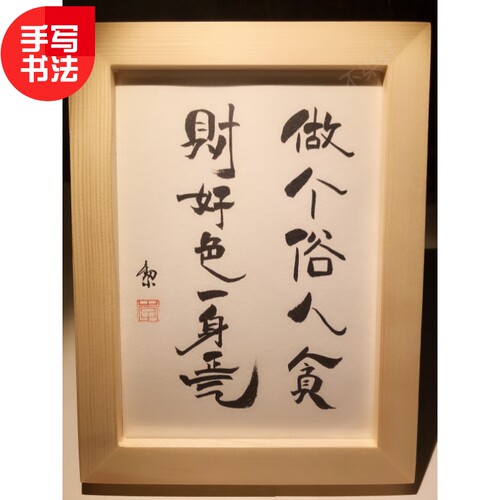 手写
书法
做个俗人貪
財好色一身